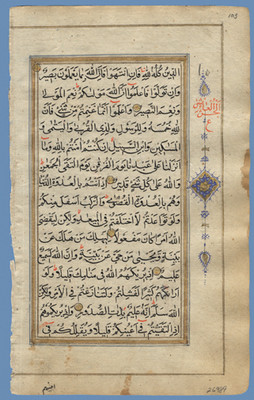 الدين كله لله فان انتهوا فان الله بما يعملون بصير
وان تولوا فاعلموا ان الله موليكم نعم المولى
ونعم النصير واعلموا انما غنمتم من شئ فان
لله خمسه وللرسول ولذي القربى واليتمى و
المسكين وابن السبيل ان كنتم امنتم بالله وما
انزلنا على عبدنا يوم الفرقان يوم التقى الجمعن
والله على كل شئ قدير اذ انتم بالعدوة الدنيا
وهم بالعدوة القصوى والركب اسفل منكم
ولو تواعدتم لاختلفتم في الميعد ولكن ليقضي
الله امرا كان مفعولا ليهلك من هلك عن
بينة ويحيى من حي عن بينة وان الله لسميع
عليم اذ يريكهم الله في منامك قليلا ولو
اريكهم كثيرا لفشلتم ولتنازعتم في الامر ولكن
الله سلم انه عليم بذات الصدور واذ يريكموهم
اذ التقيتم في اعينكم قليلا ويقللكم في
اعينهم